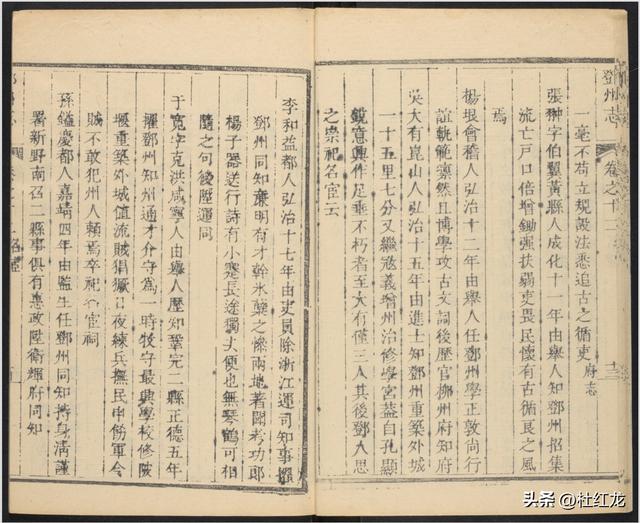 鄧州志 卷之十二 十三
一毫不苟立規設法悉追古之循吏 府志
張翀字伯翼黃縣人成化十一年由舉人知鄧州招集
流亡戶口倍增鋤強扶弱吏畏民懷有古循良之風
焉
楊垠會稽人弘治十二年由舉人任鄧州學正敦尚行
誼軌範凜然且博學攻古文詞後歷官柳州府知府
吳大有崑山人弘治十五年由進士知鄧州重築外城
一十五里七分又繼寇義增州治修學宮蓋自孔顯
興作足垂不朽者至大有僅三人其後鄧人思
之崇祀名宦云
李和益都人弘治十七年由吏員除浙江運司知事擢
鄧州同知廉明有才幹氷蘗之懆兩地著聞考功郎
楊子器送行詩有小蹇長途獨丈便也無琴鶴可相
隨之句後歷運同
于寬字克洪咸寧人由舉人歷知鞏完二縣正德五年
擢鄧州知州通才介守為一時牧守最興學校修陂
堰重築外城值流賊猖獗日夜練兵撫民申飭軍令
賊不敢犯州人賴焉卒祀名宦祠
孫鏜慶都人嘉靖四年由監生任鄧州同知持身清謹
署新野南召二縣事俱有惠政陞衛輝府同知
头条 @杜红龙